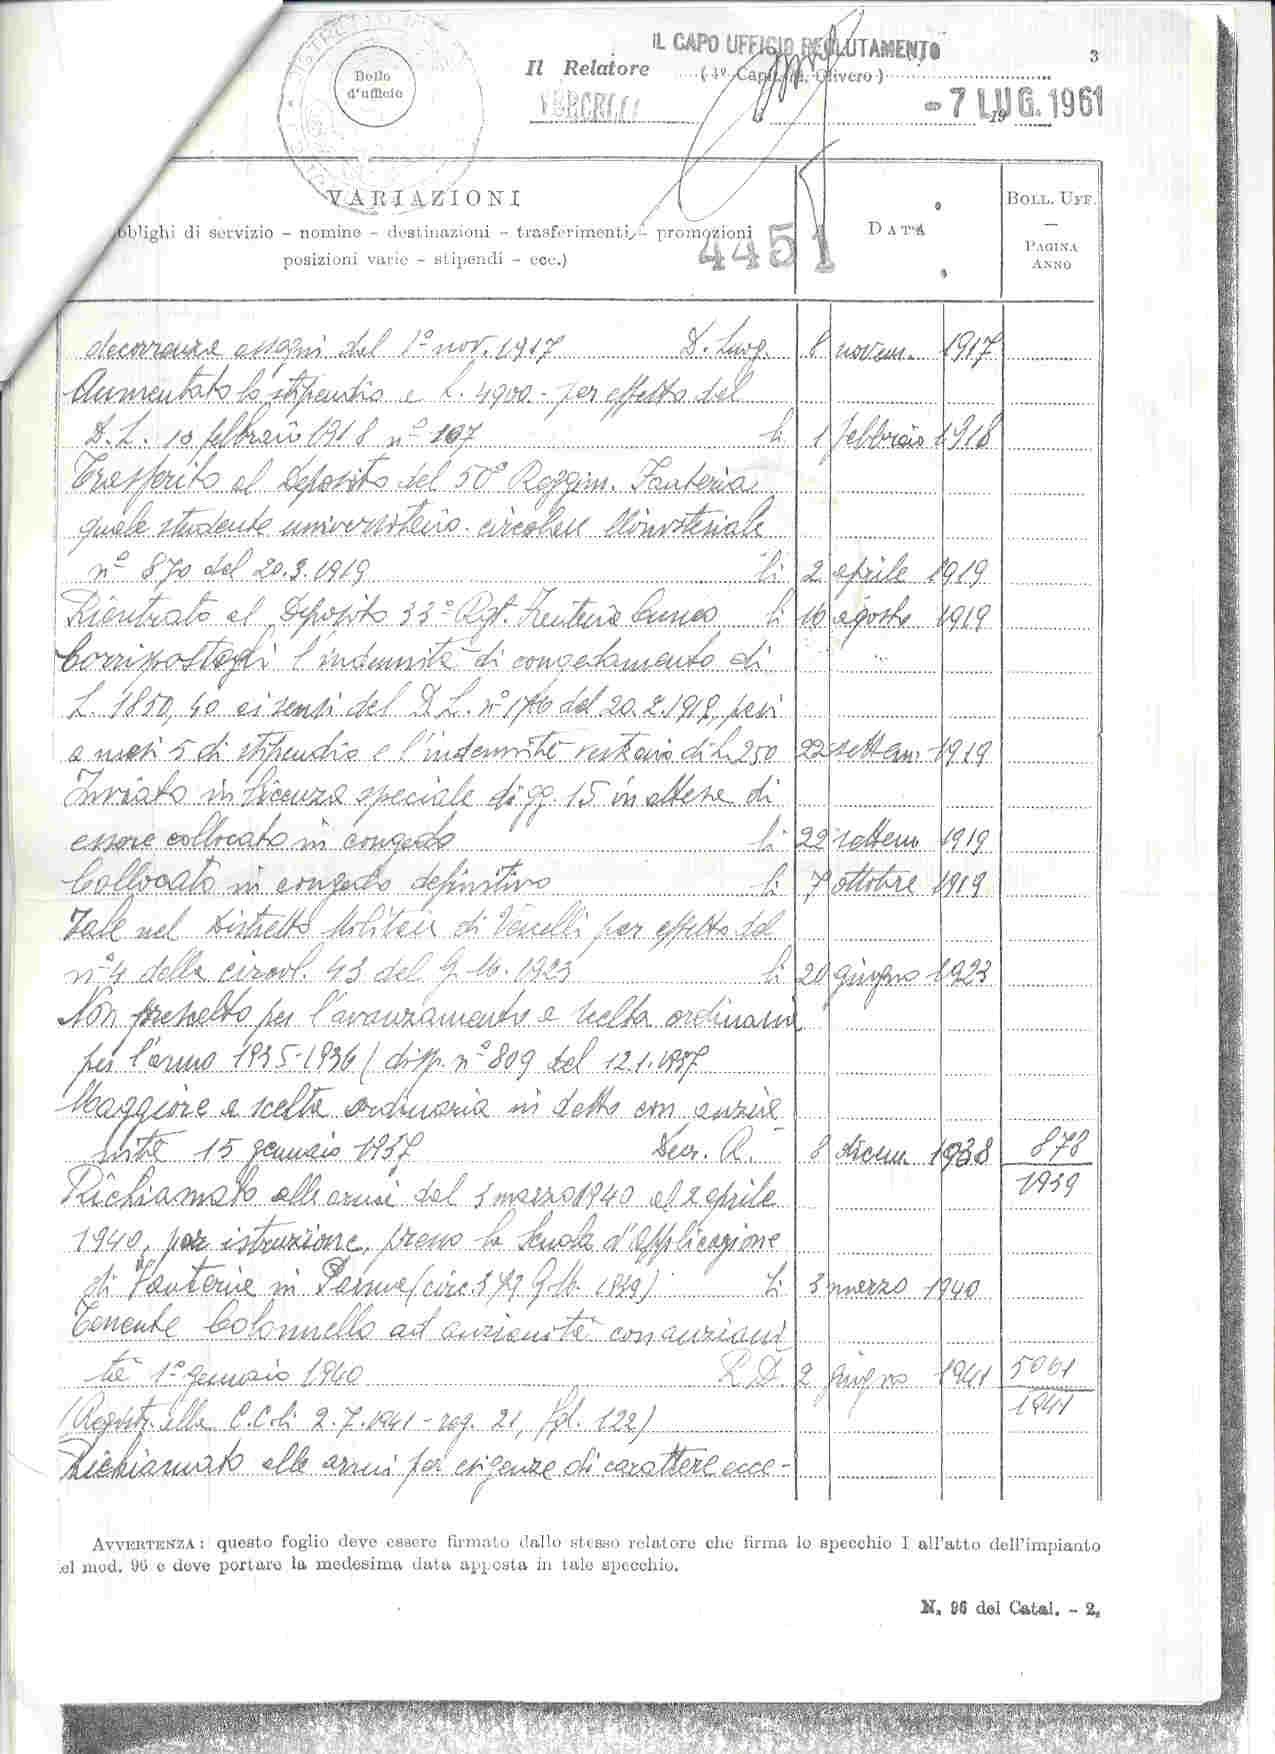 Bollo
d'ufficio
Il Relatore
IL CAPO UFFICIO RECLUTAMENTO
(1° Cap. Olivero)
3
VERCELLI
- 7 LUG. 1961
19
VARIAZIONI
obblighi di servizio – nomine – destinazioni – trasferimenti – promozioni
posizioni varie – stipendi – ecc.)
4451
DATA
BOLL. UFF.
PAGINA
ANNO
decorrenza assegni dal 1° nov. 1917 D. Luog. 8 novem. 1917
Aumentato lo stipendio a L. 4900.- per effetto del
D. L. 10 febbraio 1918 n° 107 li 1 febbraio 1918
Trasferito al Deposito del 50° Reggim. Fanteria
quale studente universitario. circolare Ministeriale
n° 870 del 20.3.1919 li 2 aprile 1919
Rientrato al Deposito 33° Rgt. Fanteria Cuneo li 16 agosto 1919
Corrispostagli l'indennità di congedamento di
L. 1850,40 ai sensi del D. L. n° del 20.2.1919, pari
a mesi 5 di stipendio e l'indennità vestiario di L. 250 22 settem. 1919
Inviato in licenza speciale di gg. 15 in attesa di
essere collocato in congedo li 22 settem 1919
Collocato in congedo definitivo li 7 ottobre 1919
Tale nel Distretto Militare di Vercelli per effetto del
n° 4 della circol. 43 del G. M. 1923 li 20 giugno 1923
Non prescelto per l'avanzamento a scelta ordinaria
per l'anno 1935-1936 (disp. n° 809 del 12.1.1937
Maggiore a scelta ordinaria in detto con anzia-
nità 15 gennaio 1937 Decr. R. 8 dicem 1938 878
1939
Richiamato alle armi dal 3 marzo 1940 al 2 aprile
1940, per istruzione, presso la Scuola d'Applicazione
di Fanteria in Parma (circ. G. M. 1939) li 3 marzo 1940
Tenente Colonnello ad anzianità con anziani
tà 1° gennaio 1940 R. D. 2 giugno 1941 5061
1941
(Registr. alla C. C. li 2.7.1941 - reg. 21, fgl. 122)
Richiamato alle armi per esigenze di carattere ecce-
AVVERTENZA: questo foglio deve essere firmato dallo stesso relatore che firma lo specchio I all'atto dell'impianto
el mod. 96 e deve portare la medesima data apposta in tale specchio.
N. 96 del Catal. - 2.